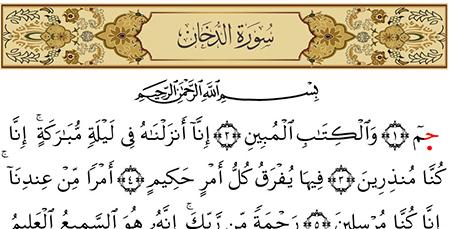 سُورَةُ الدُّخَانِ
بِسْمِ ٱللَّهِ ٱلرَّحْمَٰنِ ٱلرَّحِيمِ
جمٓ ﴿١﴾ وَٱلْكِتَٰبِ ٱلْمُبِينِ ﴿٢﴾ إِنَّآ أَنزَلْنَٰهُ فِى لَيْلَةٍ مُّبَٰرَكَةٍ ۚ إِنَّا
كُنَّا مُنذِرِينَ ﴿٣﴾ فِيهَا يُفْرَقُ كُلُّ أَمْرٍ حَكِيمٍ ﴿٤﴾ أَمْرًا مِّنْ عِندِنَآ ۚ
إِنَّا كُنَّا مُرْسِلِينَ ﴿٥﴾ رَحْمَةً مِّن رَّبِّكَ ۚ إِنَّهُۥ هُوَ ٱلسَّمِيعُ ٱلْعَلِيمُ